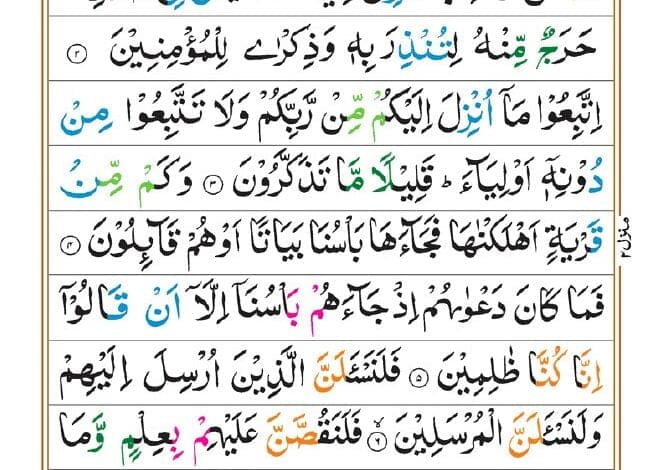 حَرَجٌ مِّنْهُ لِتُنْذِرَ بِهٖ وَذِكْرٰى لِلْمُؤْمِنِيْنَ ۝۲
اِتَّبِعُوْا مَاۤ اُنْزِلَ اِلَيْكُمْ مِّنْ رَّبِّكُمْ وَلَا تَتَّبِعُوْا مِنْ
دُوْنِهٖۤ اَوْلِيَآءَ ؕ قَلِيْلًا مَّا تَذَكَّرُوْنَ ۝۳ وَكَمْ مِّنْ
قَرْيَةٍ اَهْلَكْنٰهَا فَجَآءَهَا بَاْسُنَا بَيَاتًا اَوْ هُمْ قَآئِلُوْنَ ۝۴
فَمَا كَانَ دَعْوٰىهُمْ اِذْ جَآءَهُمْ بَاْسُنَاۤ اِلَّاۤ اَنْ قَالُوْۤا
اِنَّا كُنَّا ظٰلِمِيْنَ ۝۵ فَلَنَسْـَٔلَنَّ الَّذِيْنَ اُرْسِلَ اِلَيْهِمْ
وَلَنَسْـَٔلَنَّ الْمُرْسَلِيْنَ ۝۶ فَلَنَقُصَّنَّ عَلَيْهِمْ بِعِلْمٍ وَّمَا
منزل۲